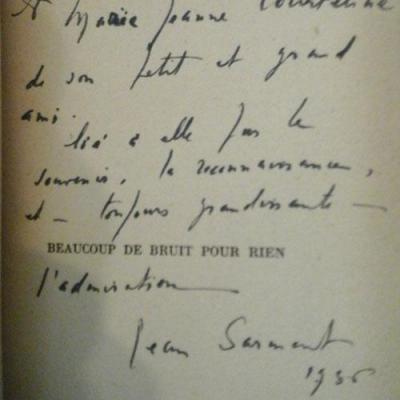 A Marie Jeanne Courteline
de son petit et grand
ami.
lié à elle par le
souvenir, la reconnaissance,
et – toujours grandissante –
BEAUCOUP DE BRUIT POUR RIEN
l'admiration
Jean Sarment
1936